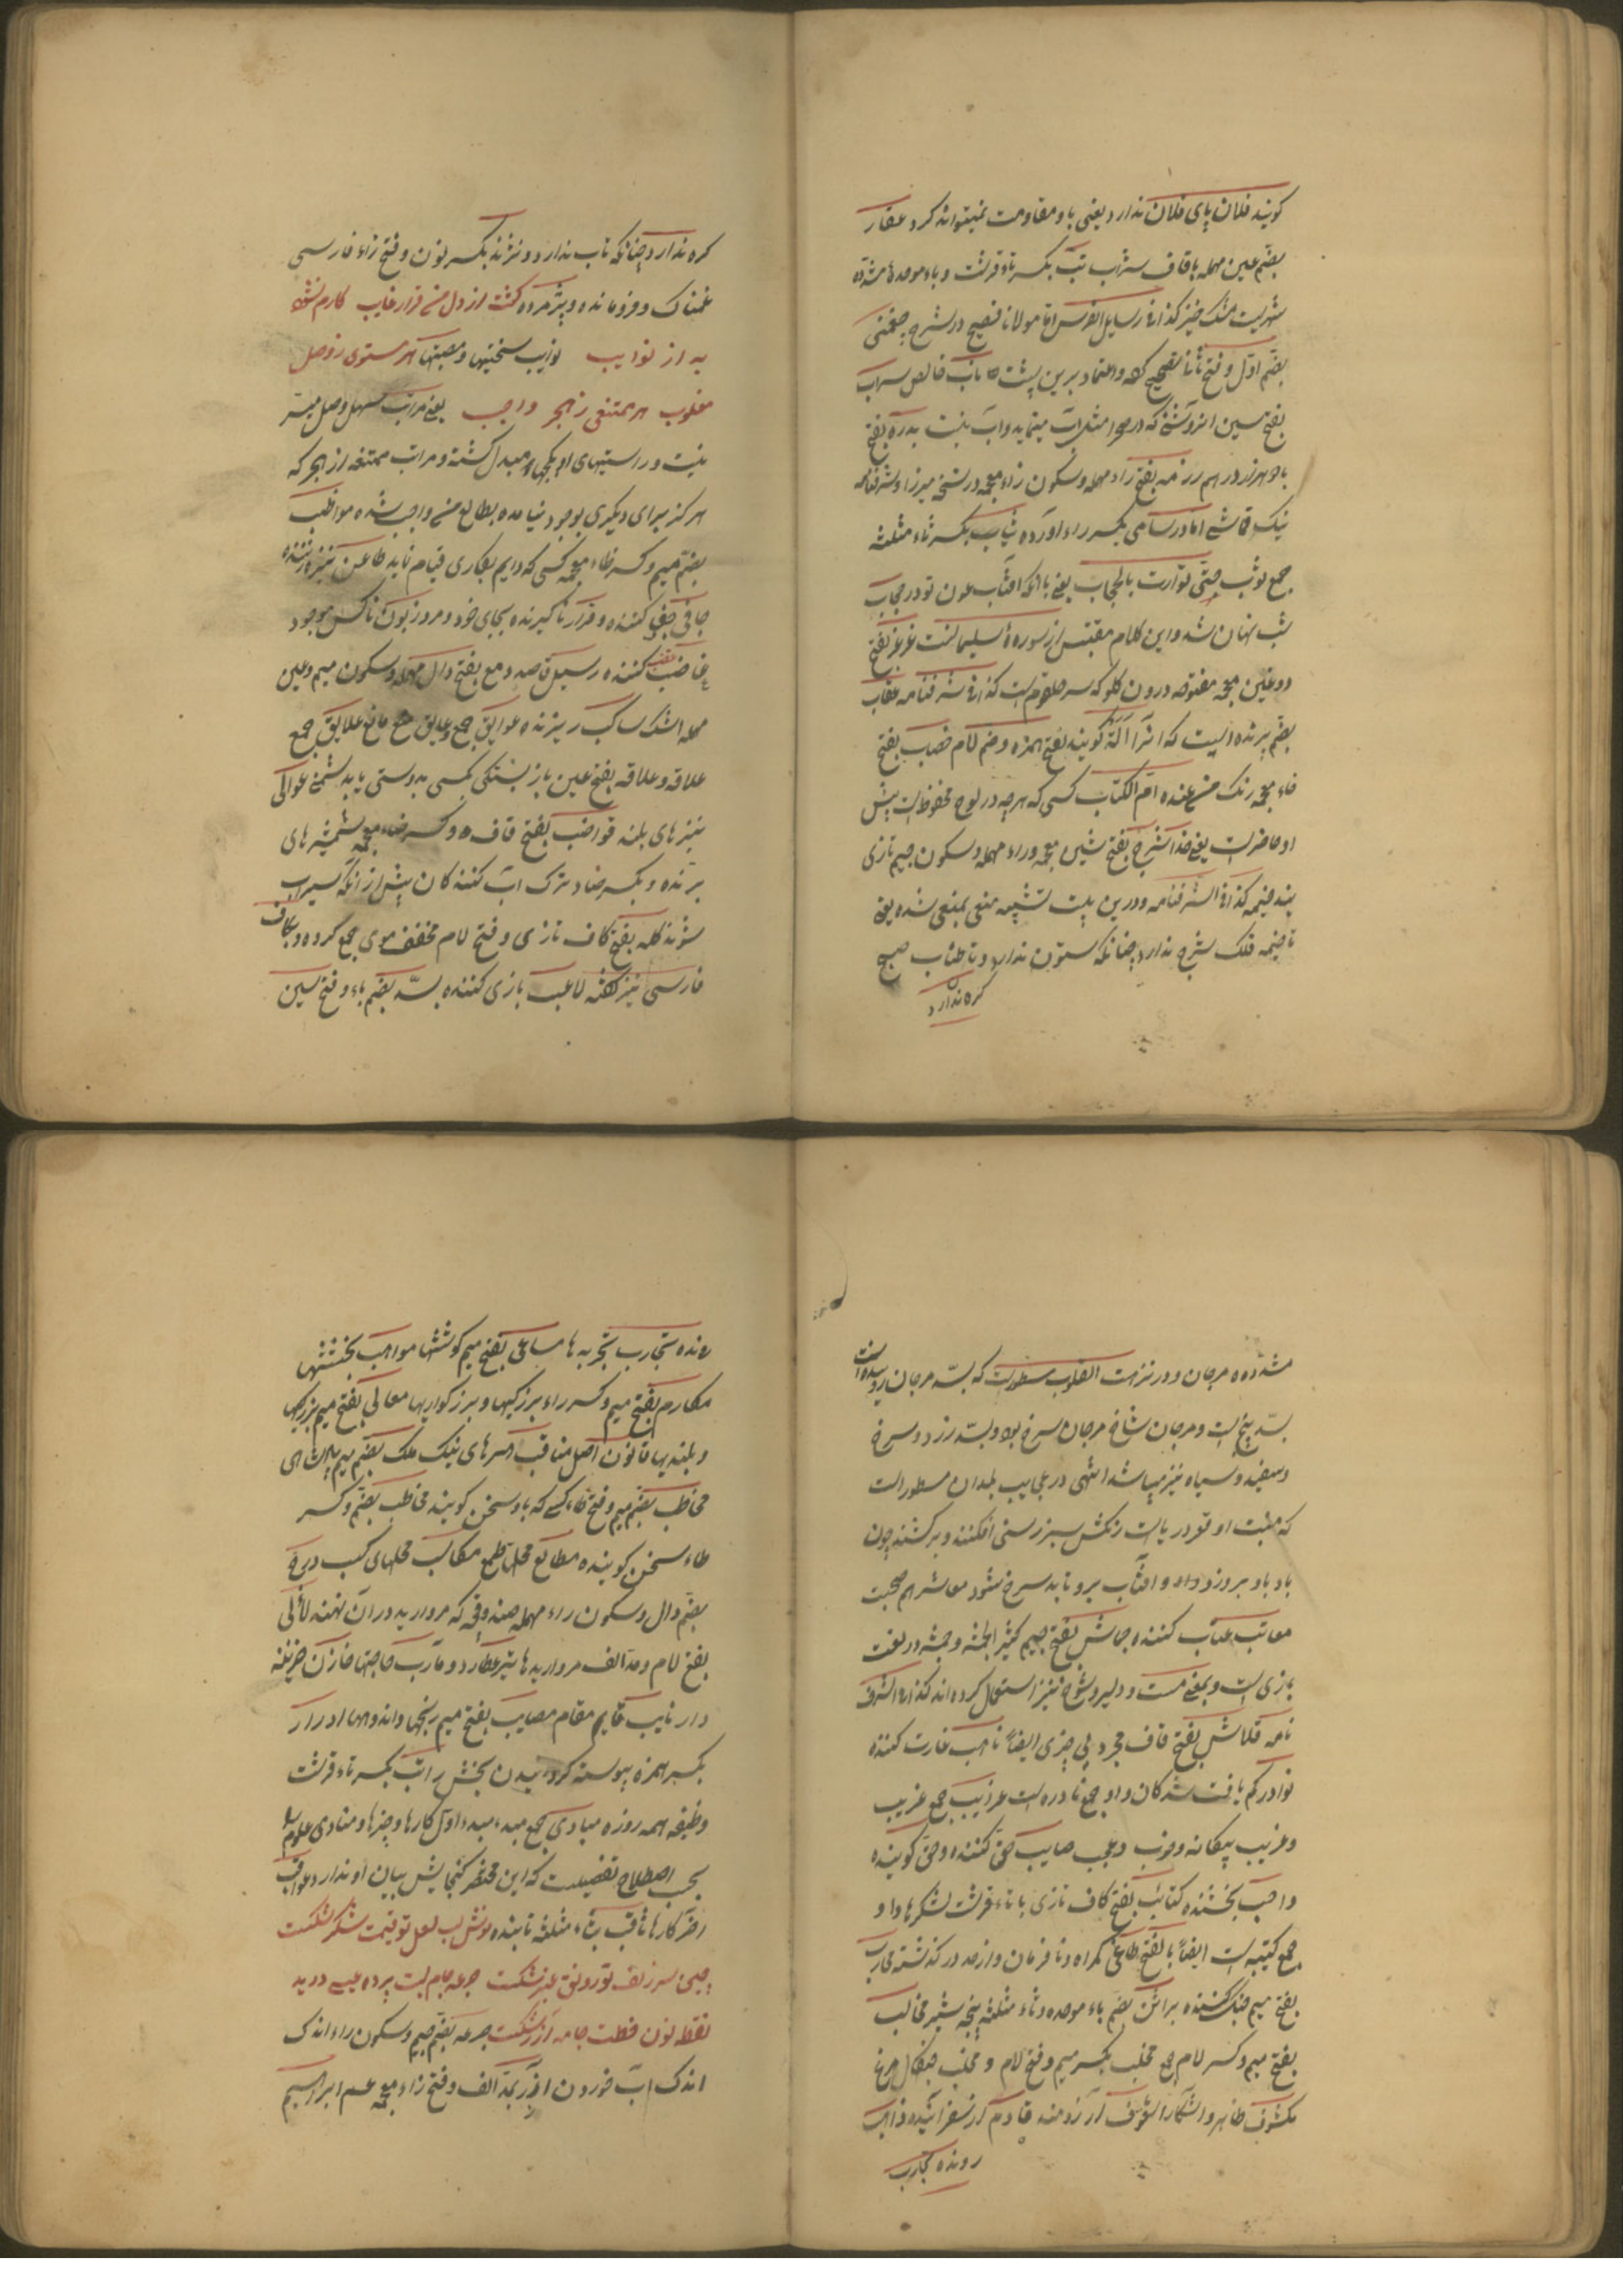 کویند فلان پای فلان ندارد یعنی باو مقاومت نمیتواند کرد عقار
بضم عین مهمله باقاف شراب تبت بکسر تاء قرشت و باء موحدۀ مشدده
شهریست مشک خیز کذا فی رسایل الفرس اما مولانا فصیح در شرح چغمنی
بضم اول و فتح ثانی تصحیح کرده و اعتماد برین پیشت ناب خالص سراب
بفتح سین انروشنی که در صحرا مثل آب مینماید و آب نیست بدره بفتح
باء هرزد درهم رزمه بفتح راء مهمله و سکون زاء معجمه در نسخه میرزا و شرفنامه
نیک قماشی اما در سامی بکسر راء اورده ثیاب بکسر ثاء مثلثه
جمع ثوب حتی توارت بالحجاب یعنی باانکه افتاب چون تو در حجاب
شب نهان شد و این کلام مقتبس از سورۀ سلیمانست غرغر بفتح
دو غین معجمه مفتوحه درون کلو که سر حلقوم است کذا فی شرفنامه عقاب
بضم پرنده ایست که انرا اله کویند بفتح همزه و ضم لام خضاب بفتح
خاء معجمه رنک عنده ام الکتاب کسی که هرچه در لوح محفوظ است پیش
او حاضر است یعنی خدا شرج بفتح شین معجمه و راء مهمله و سکون جیم تازی
بند خیمه کذا فی الشرفنامه و درین بیت تشبیه منفی بمنفی شده یعنی
تا خیمه فلک شرج ندارد چنانکه ستون ندارد و تا طناب صبح
کره ندارد
کره ندارد چنانکه تاب ندارد و نژند بکسر نون و فتح زاء فارسی
غمناک و فرومانده و پژمرده کشت از دل من قرار غایب کارم نشود
به از نوایب نوایب سختیها و مصیبتها هر مستوی ز وصل
مغلوب هر ممتنعی ز هجر واجب یعنی مراتب سهل وصل میسر
نیست و راستیهای او بکجیها مبدل کشته و مراتب ممتنعه از هجر که
هرکز برای دیکری بوجود نیامده بطالع من واجب شده مواظب
بضم میم و کسر ظاء معجمه کسی که دایم بکاری قیام نماید طاعن نیزه زننده
جافی جفا کننده و قرار ناکیرنده بجای خود و مرور زبون ناکس موجود
غاضب غضب کننده رسیل قاصد دمع بفتح دال مهمله و سکون میم و عین
مهمله اشک ساکب ریزنده عوایق جمع عایق مانع علایق جمع
علاقه و علاقه بفتح عین باز بستکی کسی بدوستی یا بدشمنی عوالی
نیزهای بلند قواضب بفتح قاف و کسر ضاد معجمه شمشیرهای
برنده و بکسر ضاد ترک اب کنندکان پیش از انکه سیراب
شوند کله بفتح کاف تازی و فتح لام مخفف موی جمع کرده و بکاف
فارسی نیز کفته لاعب بازی کننده بسد بضم باء و فتح سین
مشدده مرجان و در نزهت القلوب مسطور است که بسد مرجان رو سیده است
بسد بیخ است و مرجان شاخ مرجان سرخ بود و بسد زرد و سرخ
و سفید و سیاه نیز میباشد انتهی در عجایب بلدان مسطور است
که منبت او قعر دریاست رنکش سبز رسنی افکنند و برکشند چون
باد باو بروزد و افتاب برو تابد سرخ شود معاشر هم صحبت
معاتب عتاب کننده جماش بفتح جیم کثیر الجمش و جمش در لغت
بازی است و بمعنی مست و دلیر و شوخ نیز استعمال کرده اند کذا فی الشرف
نامه قلاش بفتح قاف مجرد بی چیزی ایضا ناهب غارت کننده
نوادر کم یافت شدکان و او جمع نادره است غرایب جمع غریب
و غریب بیکانه و خوب و عجب صایب حق کننده و حق کوینده
واهب بخشنده کتایب بفتح کاف تازی با تاء قرشت لشکرها و او
جمع کتیبه است ایضا بالفتح طاغی کمراه و نافرمان و از حد در کذشته محارب
بضم میم جنک کننده براثن بفتح باء موحده و ثاء مثلثه پنجه شیر مخالب
بفتح میم و کسر لام جمع مخلب بکسر میم و فتح لام و مخلب چنکال مرغ
مکشوف ظاهر و اشکارا شایق ارزومند قادم از سفر اینده ذاهب
رونده تجارب
رونده تجارب تجربه ها مساعی بفتح میم کوششها مواهب بخششها
مکارم بفتح میم و کسر راء بزرکیها و بزرکواریها معالی بفتح میم بزرکیها
و بلندیها قانون اصل مناقب هنرهای نیک ملک بضم میم پادشاهی
مخاطب بضم میم و فتح طاء کسی که باو سخن کویند مخاطب بضم و کسر
طاء سخن کوینده مطامع محل طمع مکاسب محلهای کسب درج
بضم دال و سکون راء مهمله صندوقچه که مروارید در آن نهند لآلی
بفتح لام و مد الف مرواریدها تیر عطارد و مآرب حاجتها خازن خزینه
دار نایب قایم مقام مصایب بفتح میم رنجها و اندوهها ادرار
بکسر همزه پیوسته کردانیدن بخشش راتب بکسر تاء قرشت
وظیفه همه روزه مبادی جمع مبدء مبدء اول کارها و چیزها و مبادی علوم را
بحسب اصطلاح تفصیلست که این مختصر کنجایش بیان او ندارد عواقب
آخر کارها ثاقب بثاء مثلثه تابنده نوش لب لعل تو قیمت شکر شکست
چین سر زلف تو رونق عنبر شکست جرعه جام لبت پرده عیسی درید
نقطه نون خطت جامه آزر شکست جرعه بضم جیم و سکون راء اندک
اندک اب خوردن آزر بمد الف و فتح زاء معجمه عم ابراهیم